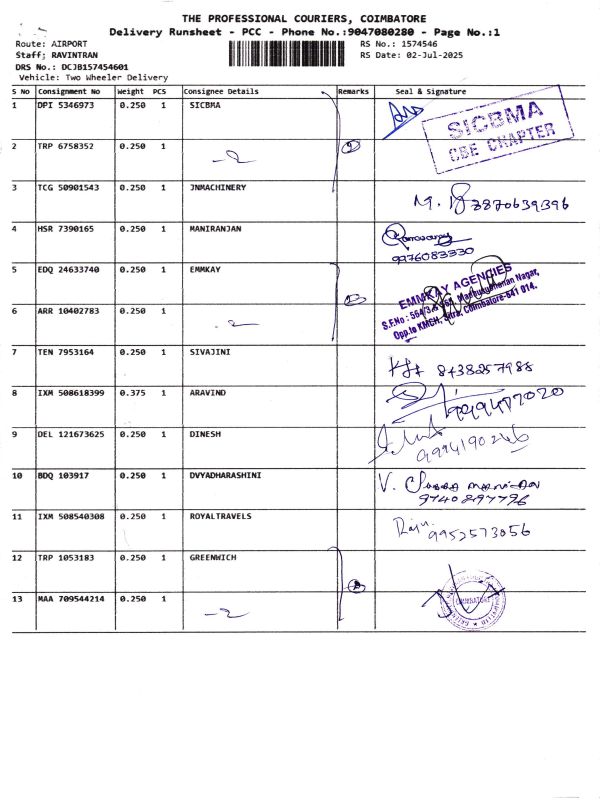 THE PROFESSIONAL COURIERS, COIMBATORE
Delivery Runsheet - PCC - Phone No.:9047080280 - Page No.:1
Route: AIRPORT RS No.: 1574546
Staff: RAVINTRAN RS Date: 02-Jul-2025
DRS No.: DCJB157454601
Vehicle: Two Wheeler Delivery
S No Consignment No Weight PCS Consignee Details Remarks Seal & Signature
1 DPI 5346973 0.250 1 SICBMA
SICBMA
CBE CHAPTER
2 TRP 6758352 0.250 1 -2 2
3 TCG 50901543 0.250 1 JNMACHINERY 7870639396
4 HSR 7390165 0.250 1 MANIRANJAN
9976083330
5 EDQ 24633740 0.250 1 EMMKAY
EMMKAY AGENCIES
Opp.to KMCH, Coimbatore-641 014.
6 ARR 10402783 0.250 1 -2
7 TEN 7953164 0.250 1 SIVAJINI 8438257988
8 IXM 508618399 0.375 1 ARAVIND
9 DEL 121673625 0.250 1 DINESH
9994190246
10 BDQ 103917 0.250 1 DVYADHARASHINI
9740897796
11 IXM 508540308 0.250 1 ROYALTRAVELS Raju
9952573056
12 TRP 1053183 0.250 1 GREENWICH
13 MAA 709544214 0.250 1 -2
COIMBATORE